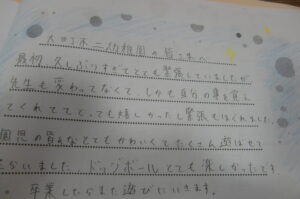 幼稚園の皆さまへ
最初、久しぶりすぎてとても緊張していましたが
先生も変わってなくて、しかも自分の事を覚え
てくれててとっても嬉しかったし緊張もなくなりました。
園児の皆んなとてもかわいくてたくさん遊ばせて
もらいました。ドッジボールとても楽しかったです
。卒業したらまた遊びにいきます。